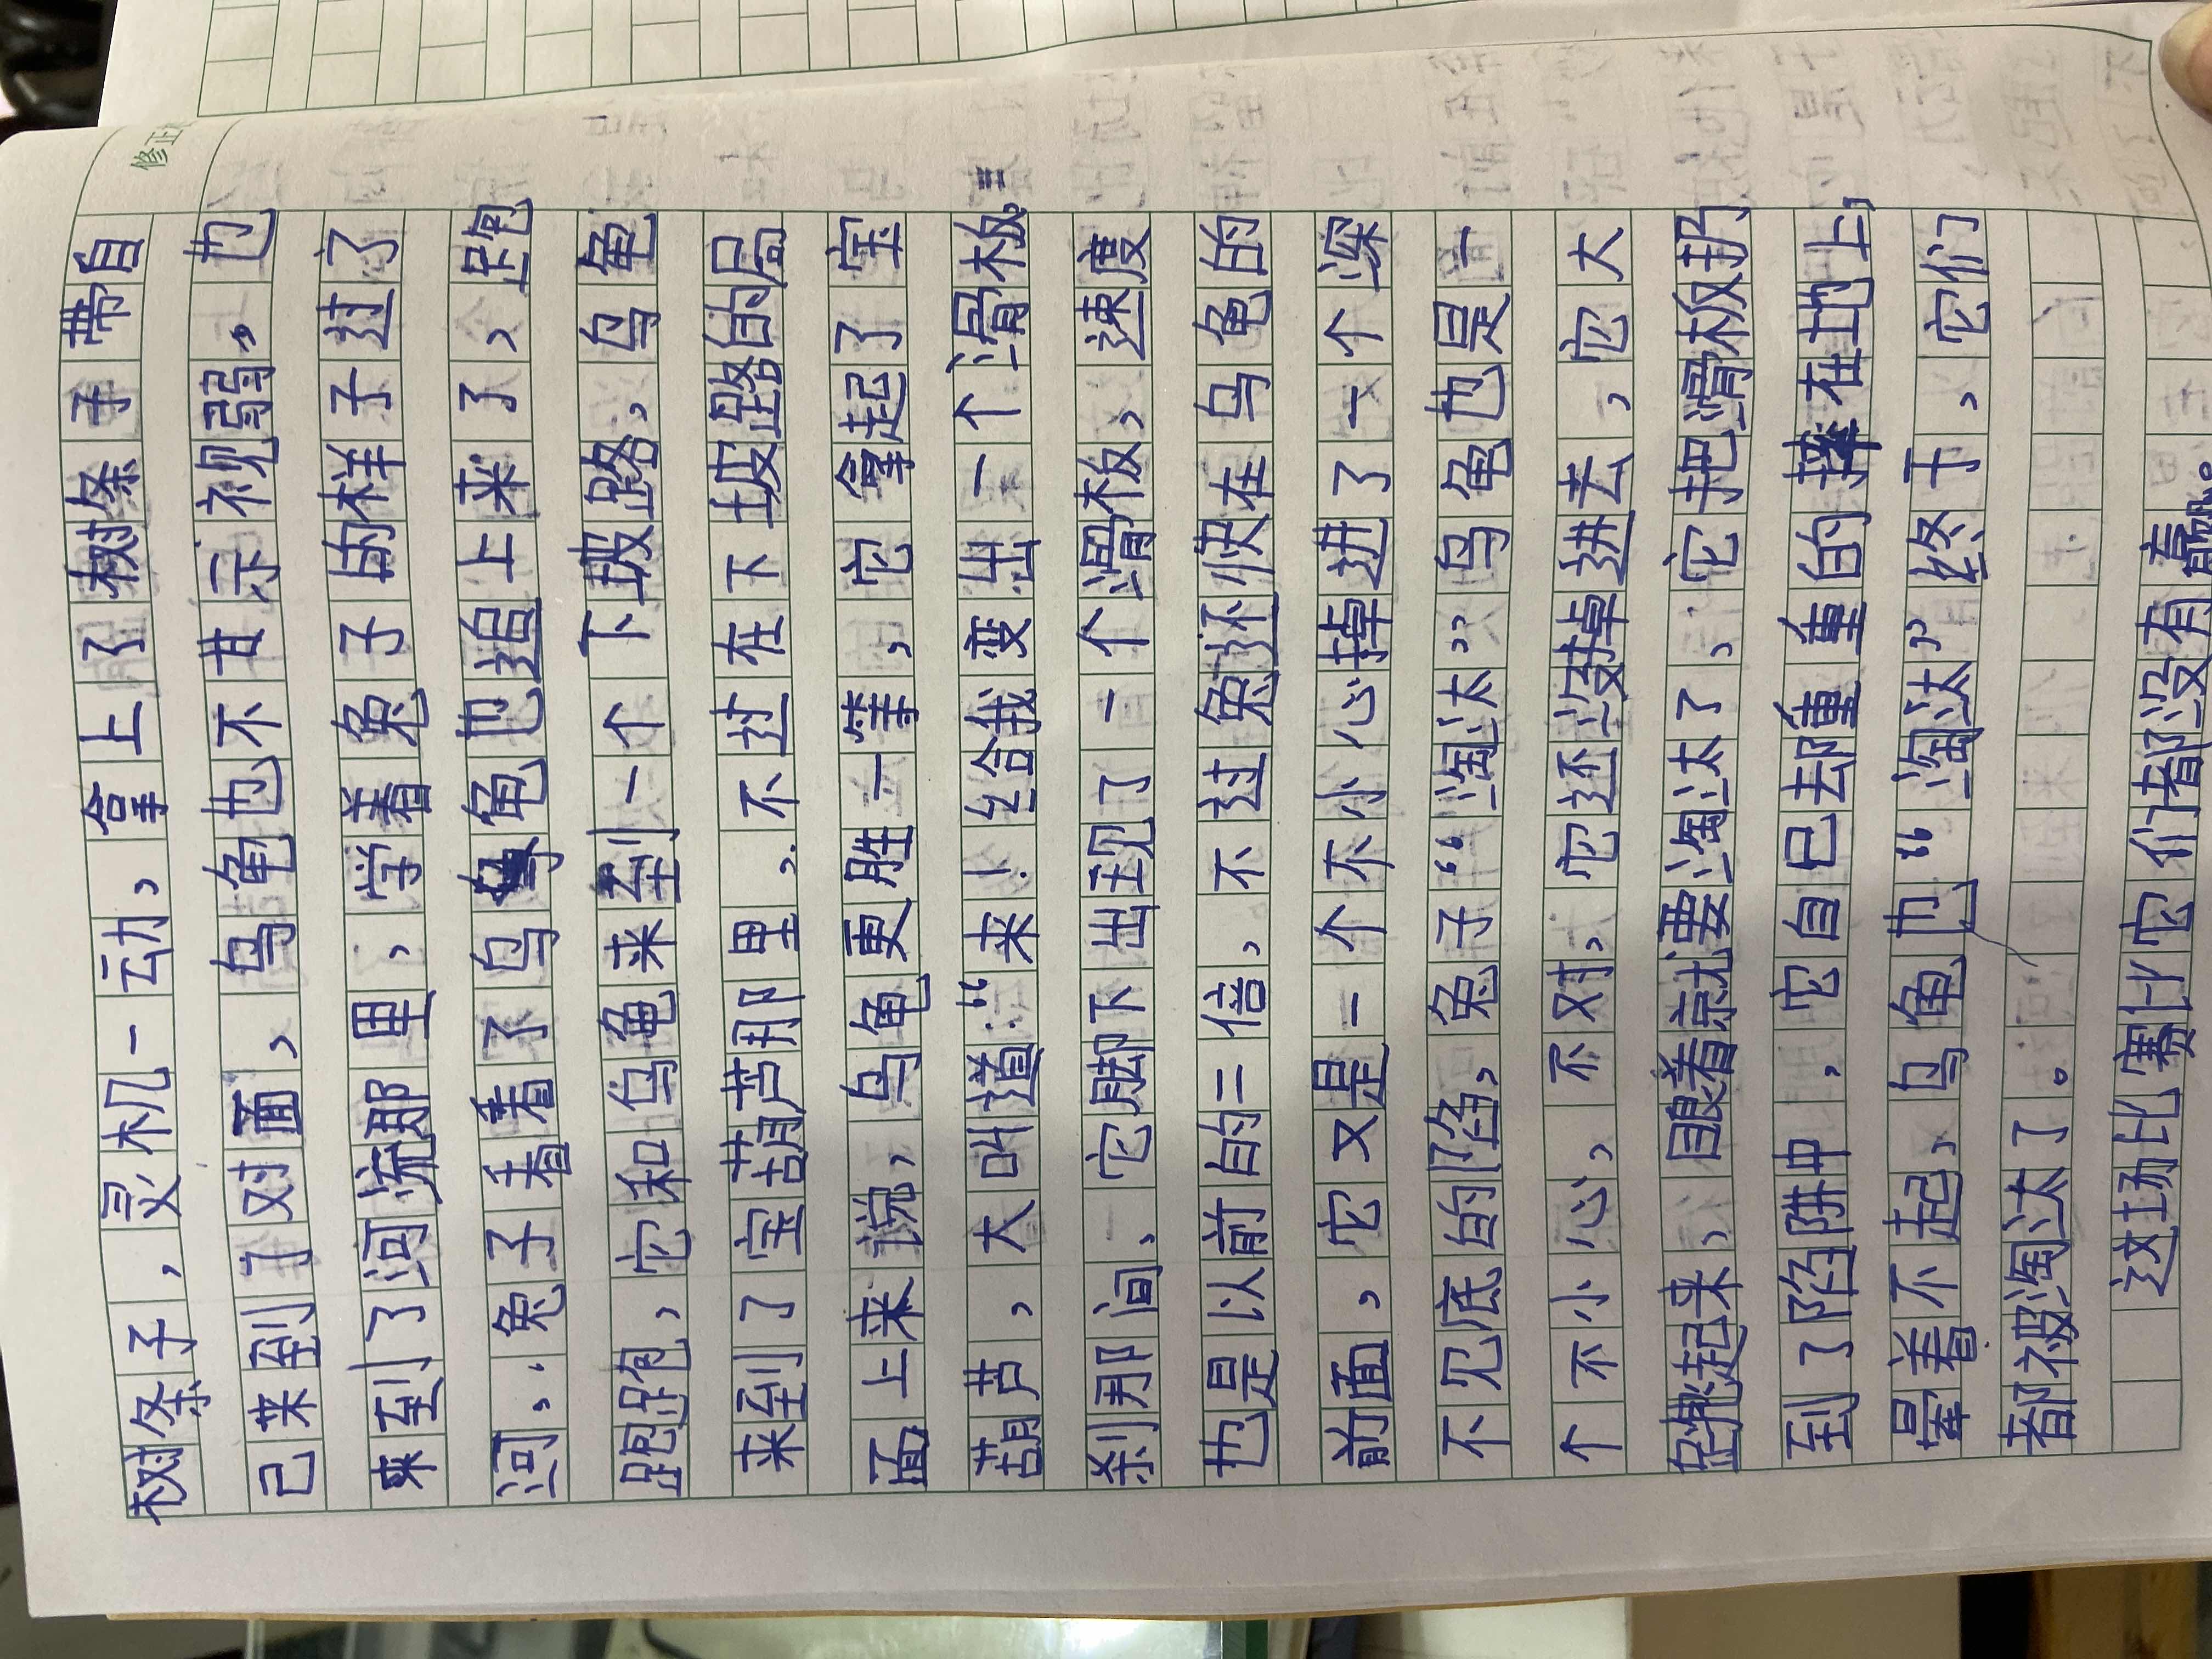 修正
树条子，灵机一动，拿上了树条子带自
己来到了对面，乌龟也不甘示弱，也
来到了河流那里，学着兔子的样子过了
河，兔子看着了乌龟也追上来了，跑
跑跑，它和乌龟来到一个下坡路，乌龟
来到了宝葫芦那里，不过在下坡路的局
面上来说，乌龟更胜一筹，它拿起了宝
葫芦，大叫道：“来！给我变出一个滑板。”
刹那间，它脚下出现了一个滑板，速度
也是以前的二倍，不过兔还快在乌龟的
前面，它又是一个不小心掉进了一个深
不见底的陷，兔子“淘汰”乌龟也是一
个不小心，不对，它还没掉进去，它大
跳起来，眼看就要淘汰了，它把滑板扔
到了陷阱中，它自己却重重的摔在地上，
晕着不起，乌龟也“淘汰”终于，它们
都被淘汰了。
这场比赛它们都没有赢。